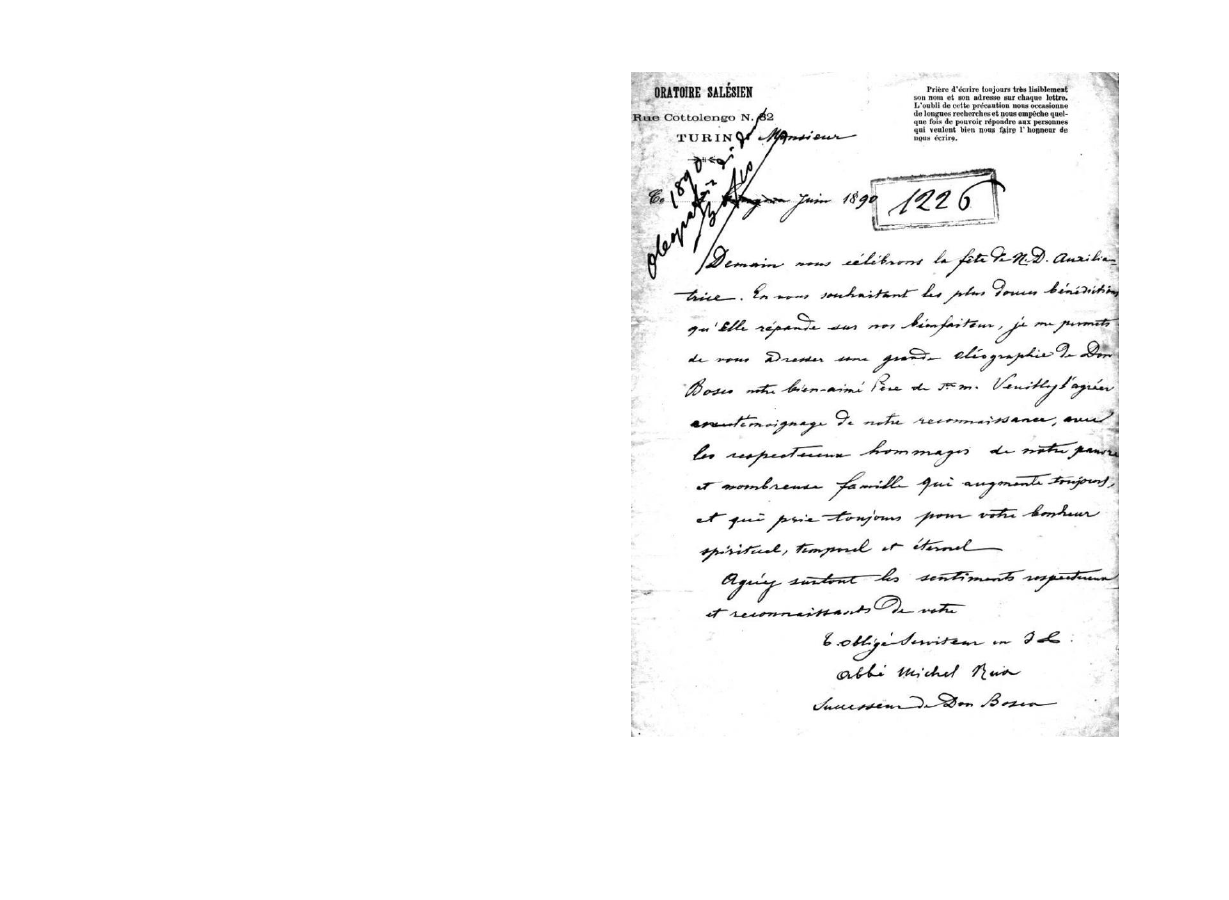 ORATOIRE SALÉSIEN
Rue Cottolengo N. 32
TURIN
Prière d'écrire toujours très lisiblement
son nom et son adresse sur chaque lettre.
L'oubli de cette précaution nous occasionne
de longues recherches et nous empêche quel-
que fois de pouvoir répondre aux personnes
qui veulent bien nous faire l'honneur de
nous écrire.
Monsieur
1890
Juin 1890
1226
Demain nous célébrons la fête de N. D. Auxilia-
trice. En vous souhaitant les plus douces bénédictions
qu'Elle répande sur nos bienfaiteurs, je me permets
de vous adresser une grande oléographie de Don
Bosco notre bien-aimé Père de s. m. Veuillez l'agréer
témoignage de notre reconnaissance, avec
les respectueux hommages de notre pauvre
et nombreuse famille qui augmente toujours,
et qui prie toujours pour votre bonheur
spirituel, temporel et éternel
Agréez surtout les sentiments respectueux
et reconnaissants de votre
t. obligé Serviteur en J. C.
Abbé Michel Rua
Successeur de Don Bosco